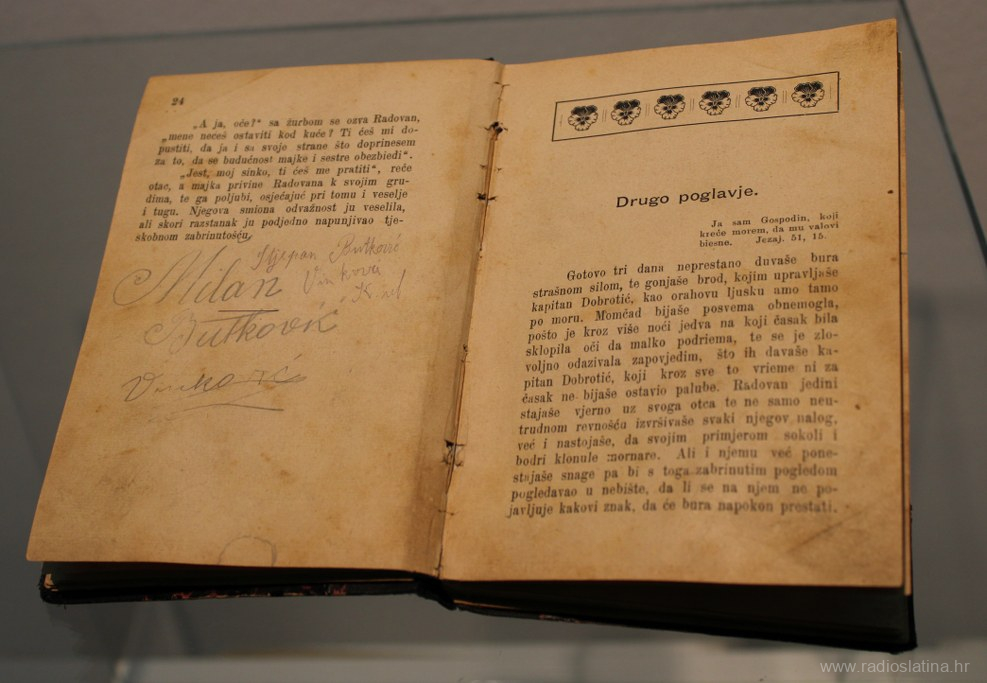 24
„A ja, oče?“ sa žurbom se ozva Radovan,
„mene nećeš ostaviti kod kuće? Ti ćeš mi do-
pustiti, da ja i sa svoje strane što doprinesem
za to, da se budućnost majke i sestre obezbiedi“.
„Jest, moj sinko, ti ćeš me pratiti“, reče
otac, a majka privine Radovana k svojim gru-
dima, te ga poljubi, osjećajuć pri tomu i veselje
i tugu. Njegova smiona odvažnost ju veselila,
ali skori razstanak ju podjedno napunjivao tje-
skobnom zabrinutošću.
Stjepan Butković
Milan
Butković
Drugo poglavje.
Ja sam Gospodin, koji
kreće morem, da mu valovi
biesne. Jezaj. 51, 15.
Gotovo tri dana neprestano duvaše bura
strašnom silom, te gonjaše brod, kojim upravljaše
kapitan Dobrotić, kao orahovu ljusku amo tamo
po moru. Momčad bijaše posvema obnemogla,
pošto je kroz više noći jedva na koji časak bila
sklopila oči da malko podriema, te se je zlo-
voljno odazivala zapovjedim, što ih davaše ka-
pitan Dobrotić, koji kroz sve to vrieme ni za
časak ne bijaše ostavio palube. Radovan jedini
stajaše vjerno uz svoga otca te ne samo neu-
trudnom revnošću izvršivaše svaki njegov nalog,
već i nastojaše, da svojim primjerom sokoli i
bodri klonule mornare. Ali i njemu već pone-
stajaše snage pa bi s toga zabrinutim pogledom
pogledavao u nebište, da li se na njem ne po-
javljuje kakovi znak, da će bura napokon prestati.
www.radioslatina.hr